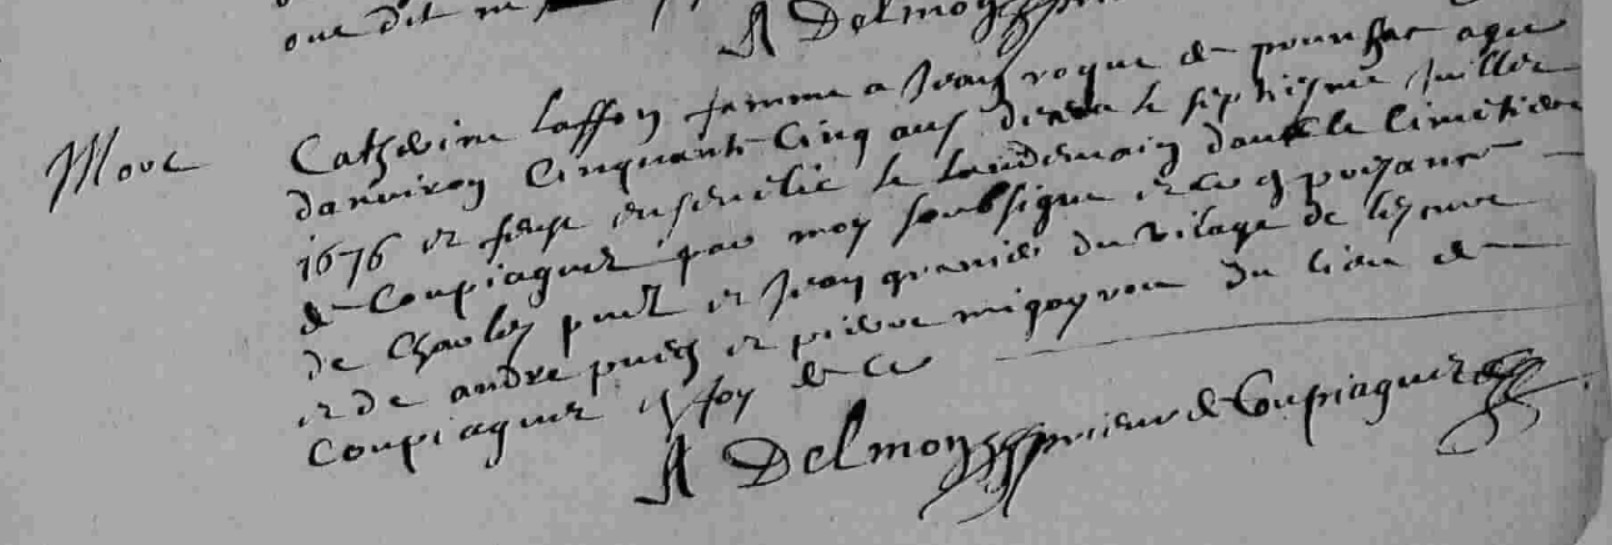 que dit
A Delmon
Mort
Catherine Laffon famme a Jean roque de pouusac agee
danuiron Cinquante Cinq ans deceda le septiesme Juillet
1676 et feust enseuelie le landemain dans le Cimetiere
de Coupiaguet par moy soubsigne et ce en presance
de Charles et Jean du vilage de
et de andre puech et pierre du lieu de
Coupiaguet en foy de ce
A Delmon prieur de Coupiaguet